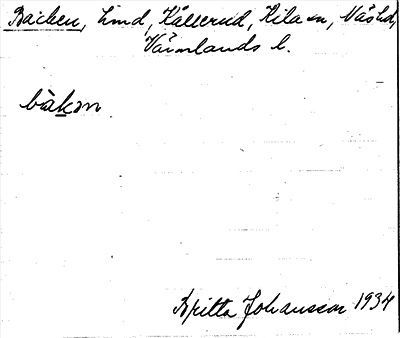 Backen, Lund, Källerud, Kila sn, Näs hd,
Värmlands l.
bàkən
Britta Johansson 1934